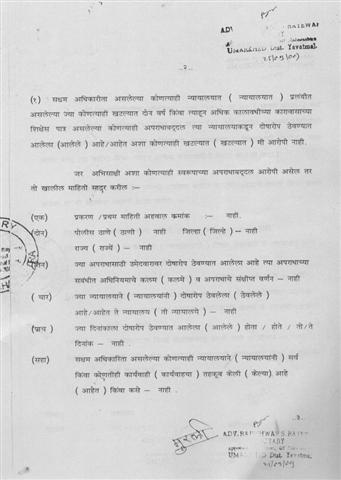 ADV.
UMARKHED Dist. Yavatmal.
२
(१) सक्षम अधिकारीता असलेल्या कोणत्याही न्यायालयात ( न्यायालयात ) प्रलंबीत
असलेल्या ज्या कोणत्याही खटल्यात दोन वर्ष किंवा त्याहून अधिक कालावधीच्या कारावासाच्या
शिक्षेस पात्र असलेल्या कोणत्याही अपराधाबद्दल त्या न्यायालयाकडून दोषारोप ठेवण्यात
आलेला (आलेले) आहे/आहेत अशा कोणत्याही खटल्यात ( खटल्यात ) मी आरोपी नाही.
जर अभिसाक्षी अशा कोणत्याही स्वरूपाच्या अपराधाबद्दल आरोपी असेल तर
तो खालील माहिती सादर करील :-
(एक) प्रकरण / प्रथम माहिती अहवाल क्रमांक :- नाही.
(दोन) पोलीस ठाणे ( ठाणी ) नाही जिल्हा ( जिल्हे ) – नाही
राज्य ( राज्ये ) – नाही
(तीन) ज्या अपराधासाठी उमेदवारावर दोषारोप ठेवण्यात आलेला आहे त्या अपराधाच्या
संबंधीत अधिनियमाचे कलम ( कलमे ) व अपराधाचे संक्षीप्त वर्णन – नाही
( चार) ज्या न्यायालयाने ( न्यायालयांनी ) दोषारोप ठेवलेला ( ठेवलेले )
आहे/आहेत ते न्यायालय ( ती न्यायालये ) – नाही
(पाच) ज्या दिनांकाला दोषारोप ठेवण्यात आलेला ( आलेले ) होता / होते / तो/ते
दिनांक – नाही
(सहा) सक्षम अधिकारिता असलेल्या कोणत्याही न्यायालयाने ( न्यायालयांनी ) सर्व
किंवा कोणतीही कार्यवाही ( कार्यवाह्या ) तहकूब केली ( केल्या) आहे
( आहेत ) किंवा कसे – नाही .
UMARKHED Dist. Yavatmal